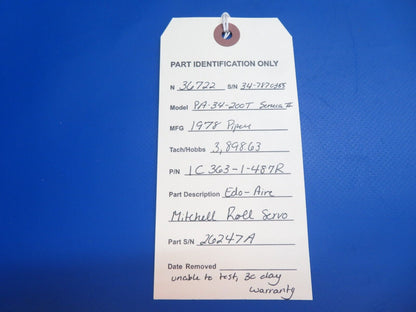 PART IDENTIFICATION ONLY
N 36722 S/N 34-7870355
Model PA-34-200T Seneca II
MFG 1978 Piper
Tach/Hobbs 3,898.63
P/N 1C363-1-487R
Part Description Edo-Aire
Mitchell Roll Servo
Part S/N 26247A
Date Removed
unable to test, 30 day
warranty